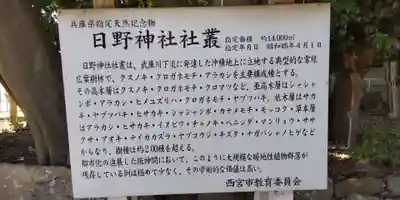 兵庫県指定天然記念物
日野神社社叢
指定面積 約14,000㎡
指定年月日 昭和48年4月1日
日野神社社叢は、武庫川下流に発達した沖積地上に立地する典型的な常緑
広葉樹林で、クスノキ・クロガネモチ・アラカシを主要構成種とする。
その高木層はクスノキ・クロガネモチ・クロマツなど、亜高木層はシャシャ
ンボ・アラカシ・ヒメユズリハ・クロガネモチ・ヤブツバキ、低木層はサカ
キ・ヤブツバキ・ヒサカキ・シャシャンボ・カナメモチ・モッコク・草本層
はアラカシ・ヒサカキ・イヌビワ・チャノキ・ベニシダ・マンリョウ・ササ
クサ・アオキ・テイカカズラ・ヤブコウジ・キヅタ・ナガバジャノヒゲなど
からなり、樹種は約200種を超える。
都市化の進展した阪神間において、このように大規模な暖地性植物群落が
残存している例は極めて少なく、その学術的な価値は高い。
西宮市教育委員会